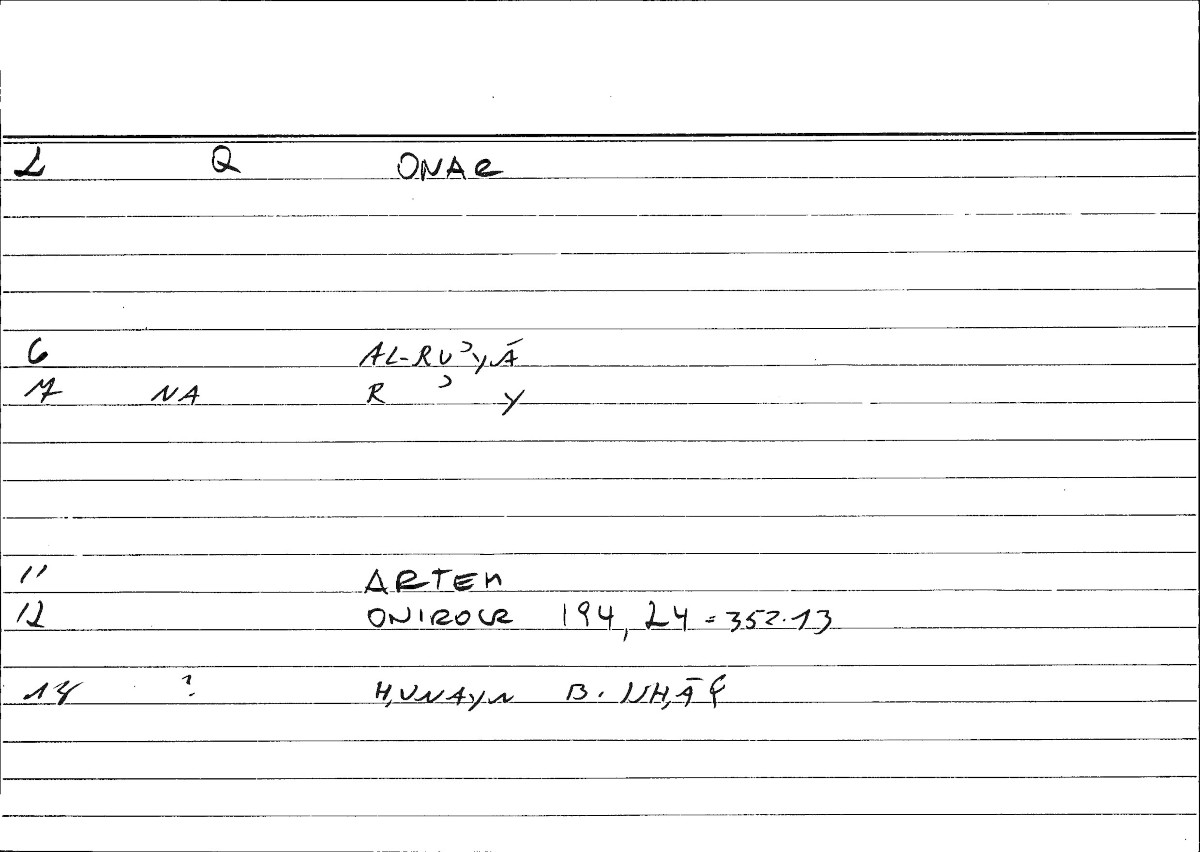 2 Q ONAR
6 AL-RUʾYĀ
7 NA R ʾ Y
11 ARTEM
12 ONIROCR 194, 24 = 352.13
14 ? ḤUNAYN B. ISḤĀQ